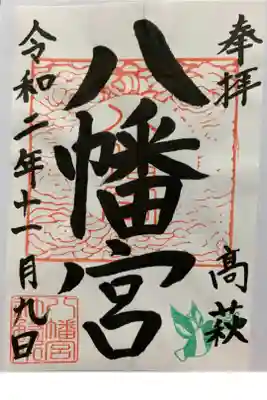 奉拝
高萩
八幡宮
令和二年十一月九日